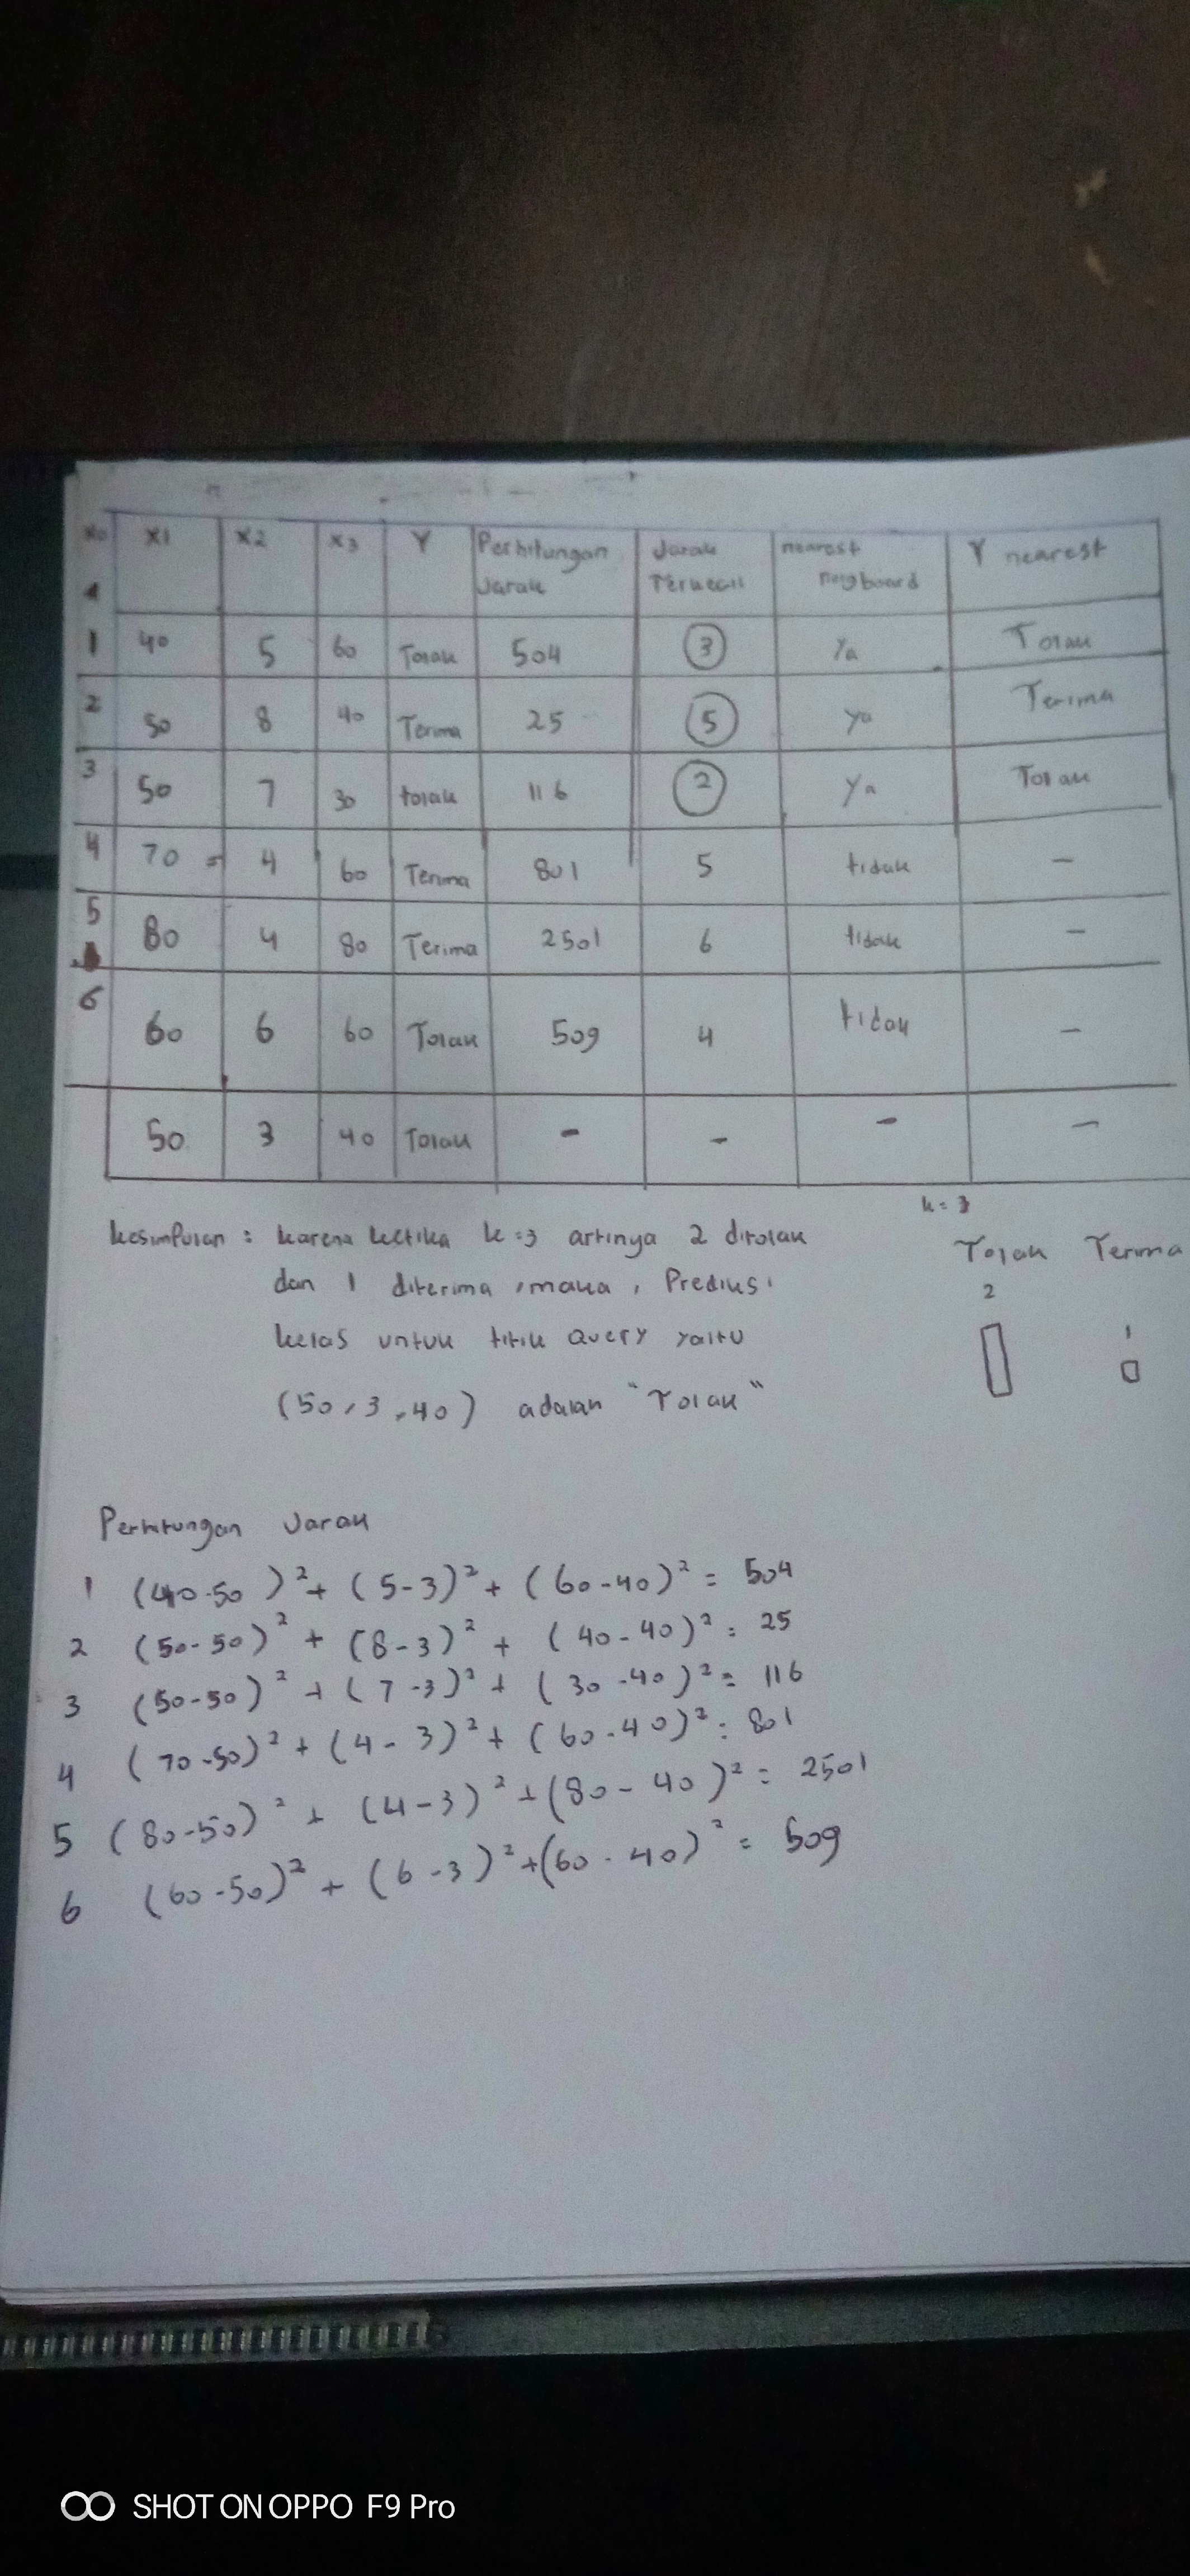 No X1 X2 X3 Y Perhitungan Jarak Jarak Terkecil nearest neigboard Y nearest
1 40 5 60 Tolak 504 3 Ya Tolak
2 50 8 40 Terima 25 5 ya Terima
3 50 7 30 tolak 116 2 Ya Tolak
4 70 = 4 60 Terima 801 5 tidak -
5 80 4 80 Terima 2501 6 tidak -
6 60 6 60 Tolak 509 4 tidak -
50 3 40 Tolak - - - -
k = 3
kesimpulan : karena ketika k = 3 artinya 2 ditolak
Tolak Terima
dan 1 diterima , maka , Prediksi
2
kelas untuk titik query yaitu
1
(50, 3, 40) adalah "Tolak"
Perhitungan Jarak
1 (40-50)² + (5-3)² + (60-40)² = 504
2 (50-50)² + (8-3)² + (40-40)² = 25
3 (50-50)² + (7-3)² + (30-40)² = 116
4 (70-50)² + (4-3)² + (60-40)² = 801
5 (80-50)² + (4-3)² + (80-40)² = 2501
6 (60-50)² + (6-3)² + (60-40)² = 509
SHOT ON OPPO F9 Pro